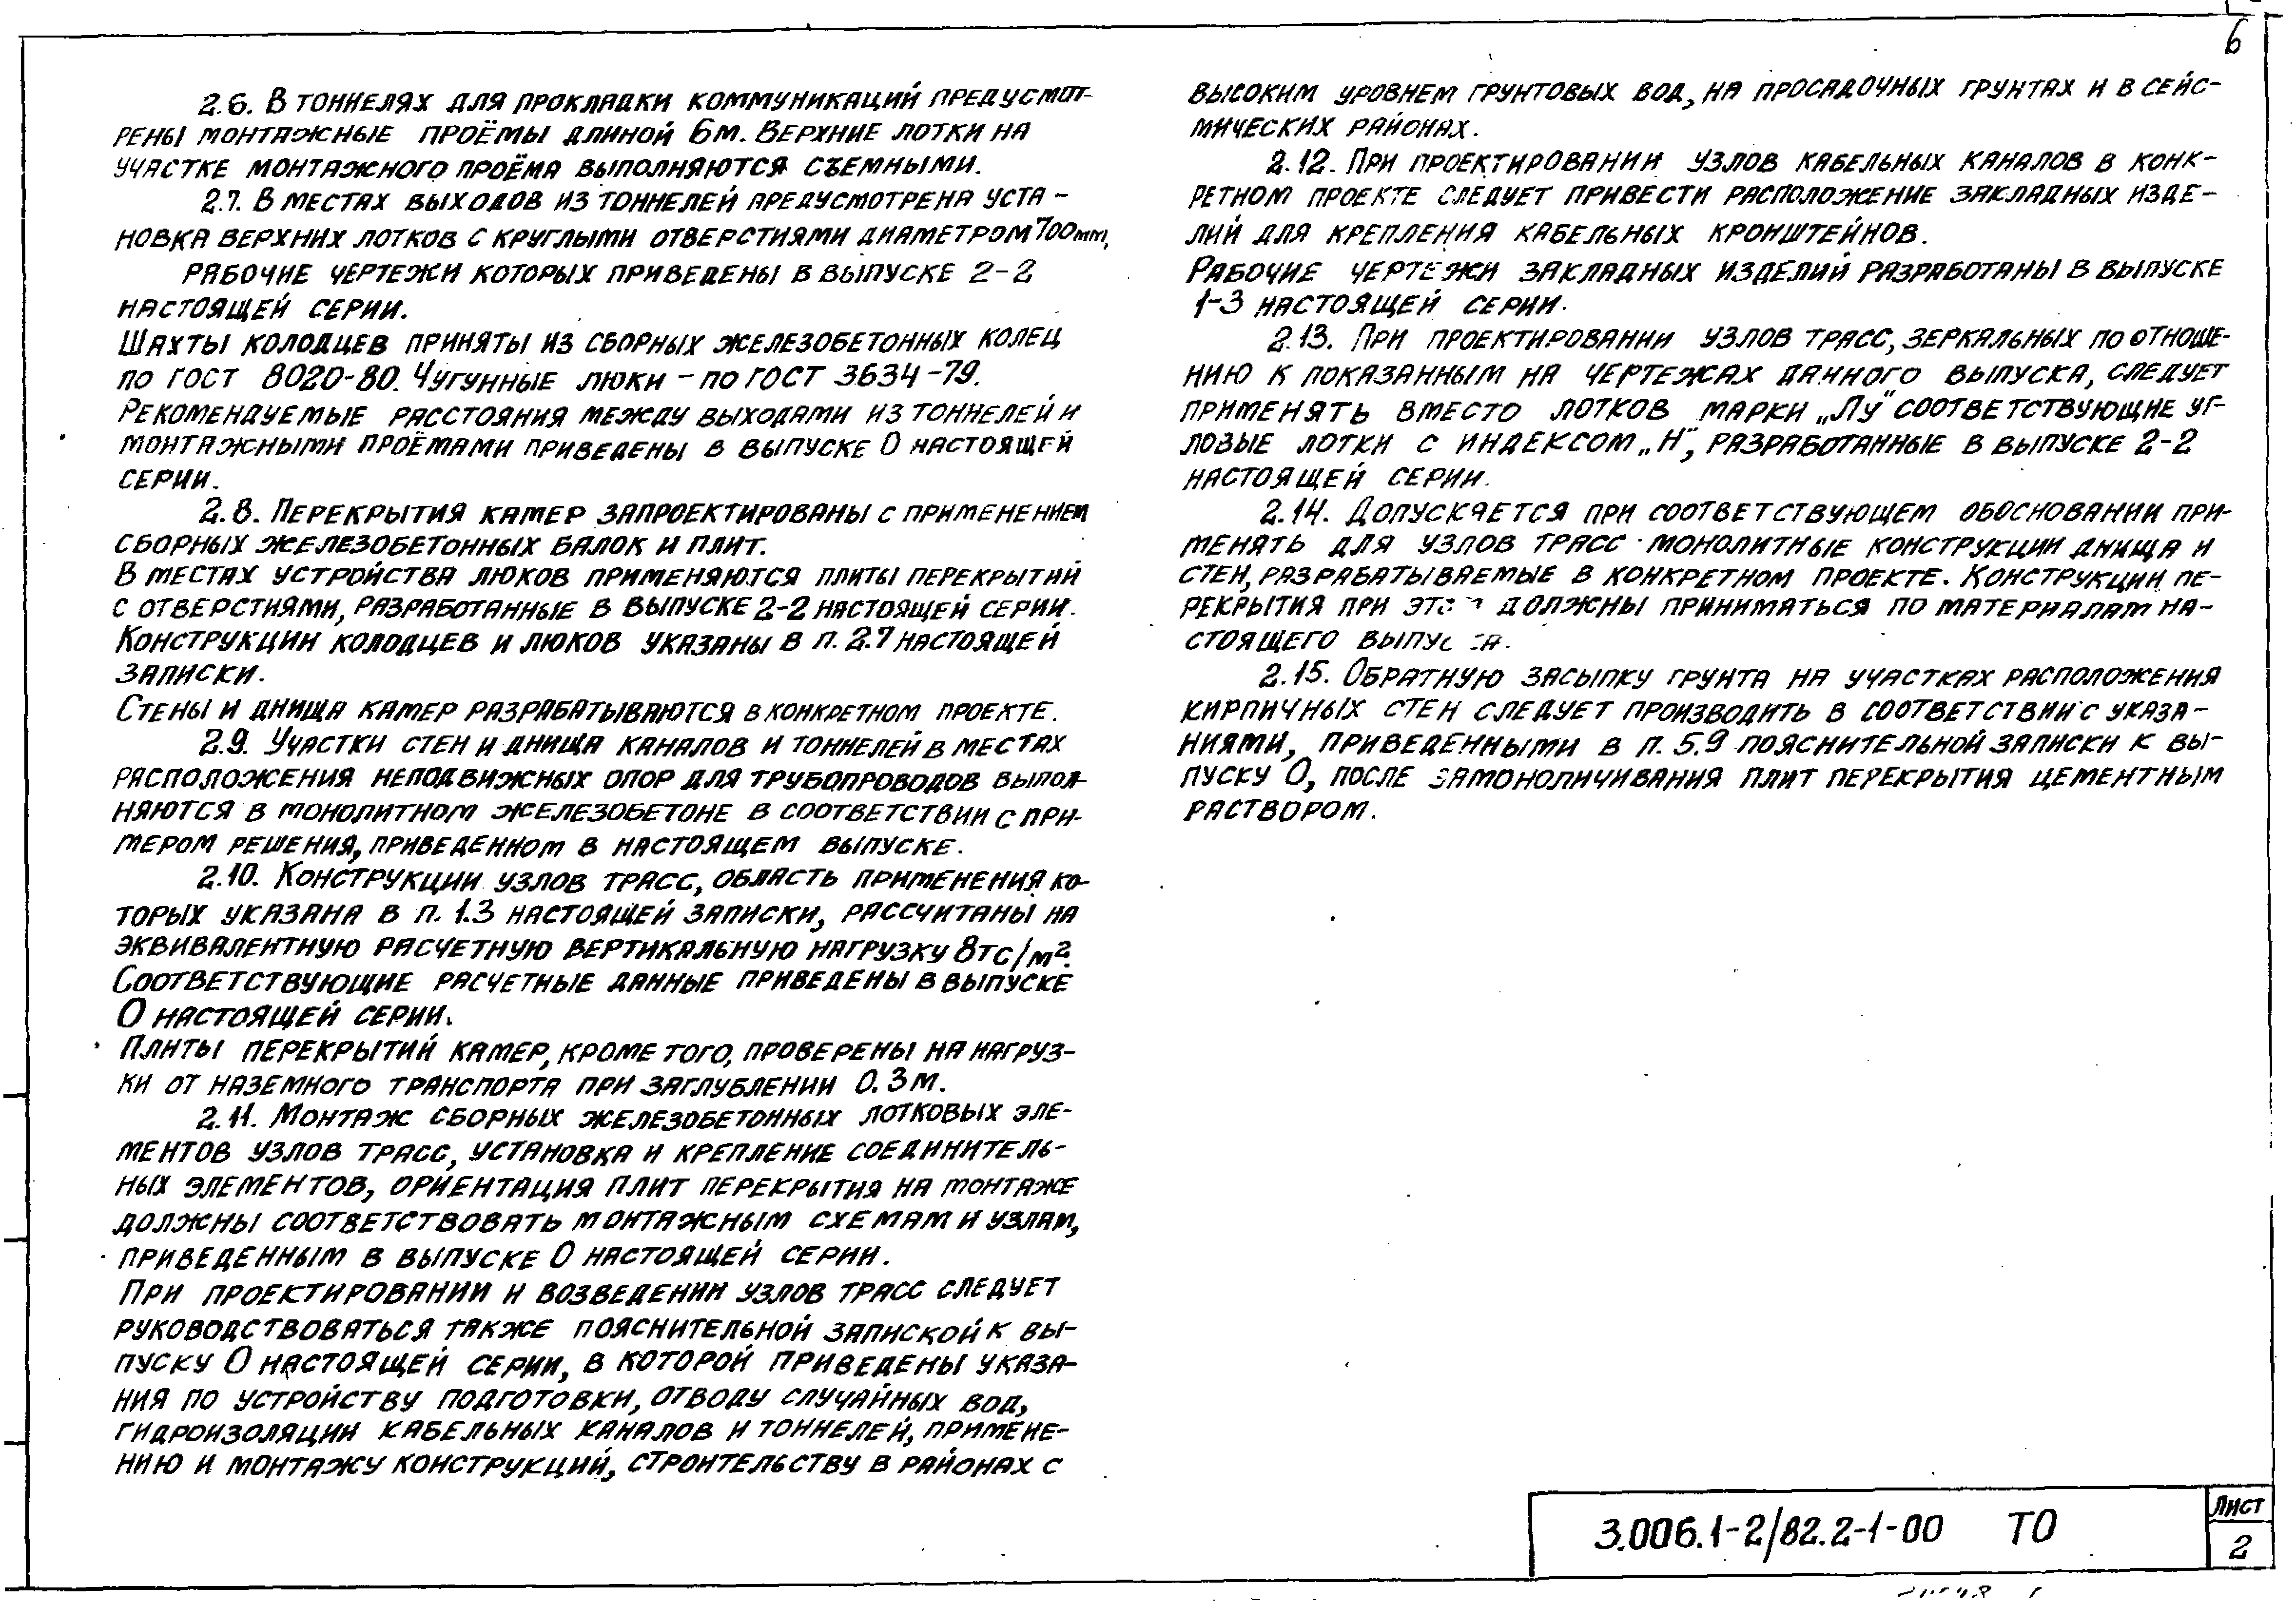 6
2.6. В тоннелях для прокладки коммуникаций предусмот-
рены монтажные проёмы длиной 6м. Верхние лотки на
участке монтажного проёма выполняются съемными.
2.7. В местах выходов из тоннелей предусмотрена уста-
новка верхних лотков с круглыми отверстиями диаметром 700мм,
рабочие чертежи которых приведены в выпуске 2-2
настоящей серии.
Шахты колодцев приняты из сборных железобетонных колец
по ГОСТ 8020-80. Чугунные люки - по ГОСТ 3634-79.
Рекомендуемые расстояния между выходами из тоннелей и
монтажными проёмами приведены в выпуске 0 настоящей
серии.
2.8. Перекрытия камер запроектированы с применением
сборных железобетонных балок и плит.
В местах устройства люков применяются плиты перекрытий
с отверстиями, разработанные в выпуске 2-2 настоящей серии.
Конструкции колодцев и люков указаны в п. 2.7 настоящей
записки.
Стены и днища камер разрабатываются в конкретном проекте.
2.9. Участки стен и днища каналов и тоннелей в местах
расположения неподвижных опор для трубопроводов выпол-
няются в монолитном железобетоне в соответствии с при-
мером решения, приведенном в настоящем выпуске.
2.10. Конструкции узлов трасс, область применения ко-
торых указана в п. 1.3 настоящей записки, рассчитаны на
эквивалентную расчетную вертикальную нагрузку 8тс/м².
Соответствующие расчетные данные приведены в выпуске
0 настоящей серии.
Плиты перекрытий камер, кроме того, проверены на нагруз-
ки от наземного транспорта при заглублении 0.3м.
2.11. Монтаж сборных железобетонных лотковых эле-
ментов узлов трасс, установка и крепление соединитель-
ных элементов, ориентация плит перекрытия на монтаже
должны соответствовать монтажным схемам и узлам,
приведенным в выпуске 0 настоящей серии.
При проектировании и возведении узлов трасс следует
руководствоваться также пояснительной запиской к вы-
пуску 0 настоящей серии, в которой приведены указа-
ния по устройству подготовки, отводу случайных вод,
гидроизоляции кабельных каналов и тоннелей, примене-
нию и монтажу конструкций, строительству в районах с
высоким уровнем грунтовых вод, на просадочных грунтах и в сейс-
мических районах.
2.12. При проектировании узлов кабельных каналов в конк-
ретном проекте следует привести расположение закладных изде-
лий для крепления кабельных кронштейнов.
Рабочие чертежи закладных изделий разработаны в выпуске
1-3 настоящей серии.
2.13. При проектировании узлов трасс, зеркальных по отноше-
нию к показанным на чертежах данного выпуска, следует
применять вместо лотков марки „Лу" соответствующие уг-
ловые лотки с индексом „Н", разработанные в выпуске 2-2
настоящей серии.
2.14. Допускается при соответствующем обосновании при-
менять для узлов трасс монолитные конструкции днища и
стен, разрабатываемые в конкретном проекте. Конструкции пе-
рекрытия при этом должны приниматься по материалам на-
стоящего выпуска.
2.15. Обратную засыпку грунта на участках расположения
кирпичных стен следует производить в соответствии с указа-
ниями, приведенными в п. 5.9 пояснительной записки к вы-
пуску 0, после замоноличивания плит перекрытия цементным
раствором.
3.006.1-2/82.2-1-00 ТО
Лист
2